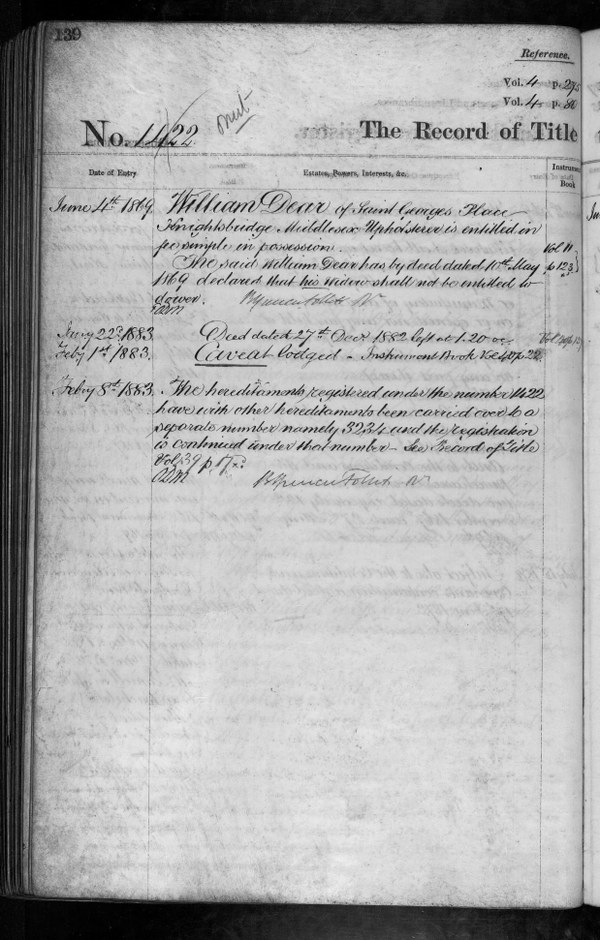 139
Reference.
Vol. 4 p.
Vol. 4 p. 80
No. 1422.
The Record of Title
Date of Entry
Estates, Powers, Interests, &c.
Book
June 4th 1869.
William Dear of Saint Georges Place
Knightsbridge Middlesex Upholsterer is entitled in
fee simple in possession.
Vol 11
The said William Dear has by deed dated 10th May
p 123
1869 declared that his widow shall not be entitled to
dower.
Jany 22d 1883.
Deed dated 27th Octr 1882 left at 1.20
Feby 1st 1883.
Caveat lodged - Instrument Book Vol 40 p 22
Febry 8th 1883.
The hereditaments registered under the number 1422
have with other hereditaments been carried over to a
separate number namely 3234 and the registration
is continued under that number - See Record of Title
Vol 39 p 17